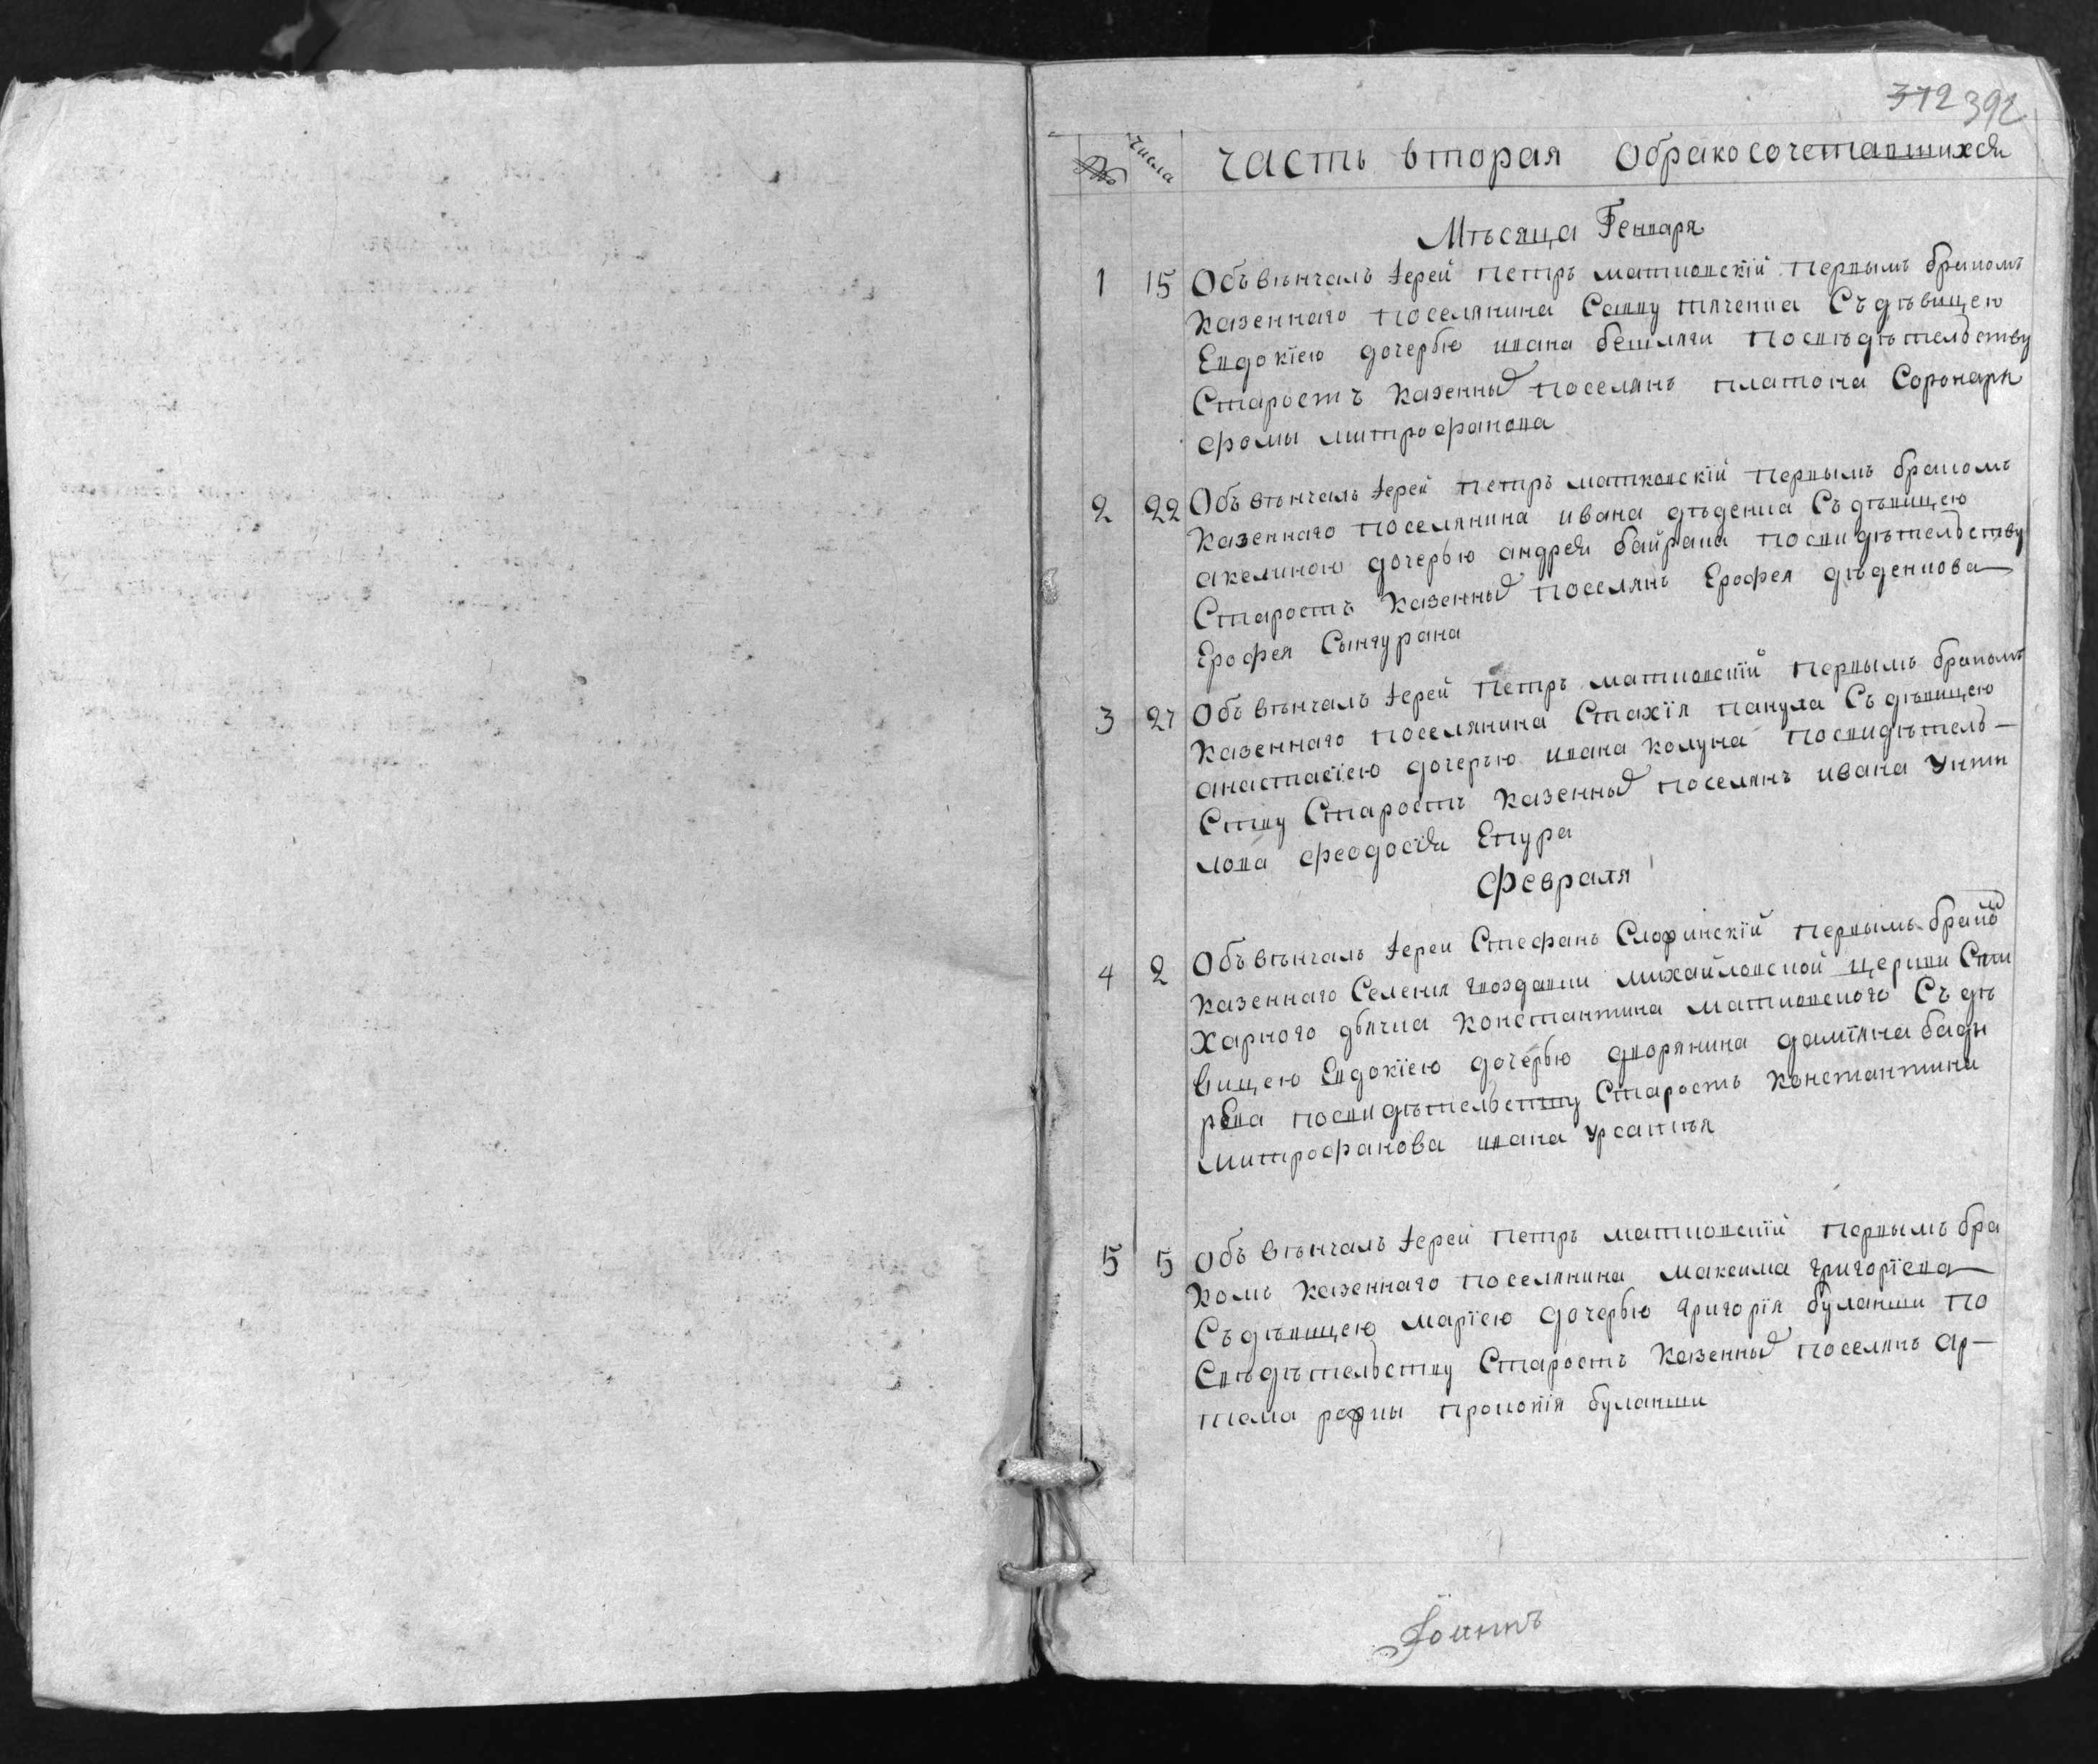 372 392
№ числа часть вторая Обракосочетавшихся
Мѣсяца Генваря
1 15 Объвѣнчалъ Іерей Петръ матковскій первымъ бракомъ
казеннаго поселянина Савву ткаченка Съ дѣвицею
Евдокіею дочерью ивана бешляги посвѣдѣтельству
Старостъ казенных поселянъ платона Соронаря
фомы митрофанова
2 22 Объвѣнчалъ Іерей Петръ матковскій первымъ бракомъ
казеннаго поселянина ивана дѣденка Съ дѣвицею
акелиною дочерью андрея байрака посвидѣтельству
Старостъ казенных поселянъ Ерофея дѣденкова
Ерофея Сынгурана
3 27 Объвѣнчалъ Іерей Петръ матковскій первымъ бракомъ
казеннаго поселянина Стахія панула Съ дѣвицею
анастасіею дочерью ивана колуна посвидѣтель–
Ству Старостъ казенных поселянъ ивана
лова феодосія Епура
Февраля
4 2 Объвѣнчалъ Іерей Стефанъ Слофинскій первымъ брако м
казеннаго Селенія гвоздавки михайловской церкви Сти
харного дьячка константина матковского Съ дѣ
вицею Евдокіею дочерью дворянина даміяна бады
рева посвидѣтельству Старостъ константина
митрофанова ивана
5 5 Объвѣнчалъ Іерей Петръ матковскій первымъ бра
комъ казеннаго поселянина максима григоріева
Съ дѣвицею маріею дочерью григорія булакши по
Свѣдѣтельству Старостъ казенных поселянъ ар–
тема прокопія булакши